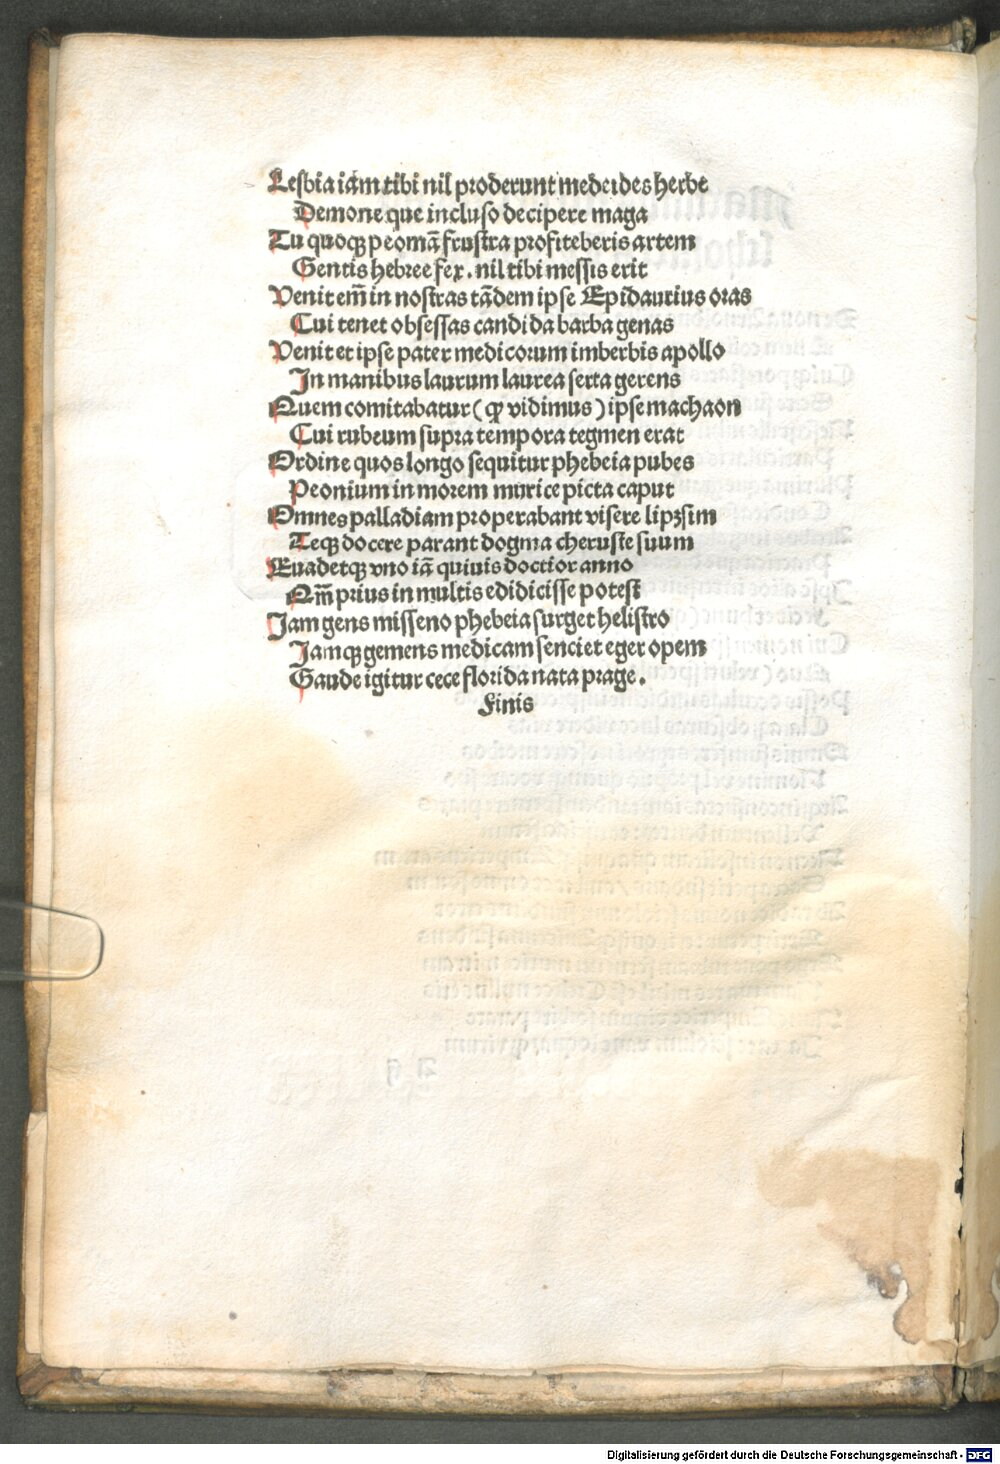 Lesbia iam tibi nil proderunt medeides herbe
Demone que incluso decipere maga
Tu quoqꝫ peomā frustra profiteberis artem
Gentis hebree fex. nil tibi messis erit
Venit em̄ in nostras tādem ipse Epidaurius oras
Cui tenet obsessas candida barba genas
Venit et ipse pater medicorum imberbis apollo
In manibus laurum laurea serta gerens
Quem comitabatur (ꝙ vidimus) ipse machaon
Cui rubeum supra tempora tegmen erat
Ordine quos longo sequitur phebeia pubes
Peonium in morem murice picta caput
Omnes palladiam properabant visere lipꝫsim
Teqꝫ docere parant dogma cheruste suum
Euadetqꝫ vno iā quiuis doctior anno
Qm̄ prius in multis edidicisse potest
Jam gens misseno phebeia surget helistro
Jamqꝫ gemens medicam senciet eger opem
Gaude igitur cece florida nata prage.
Finis
Digitalisierung gefördert durch die Deutsche Forschungsgemeinschaft - DFG